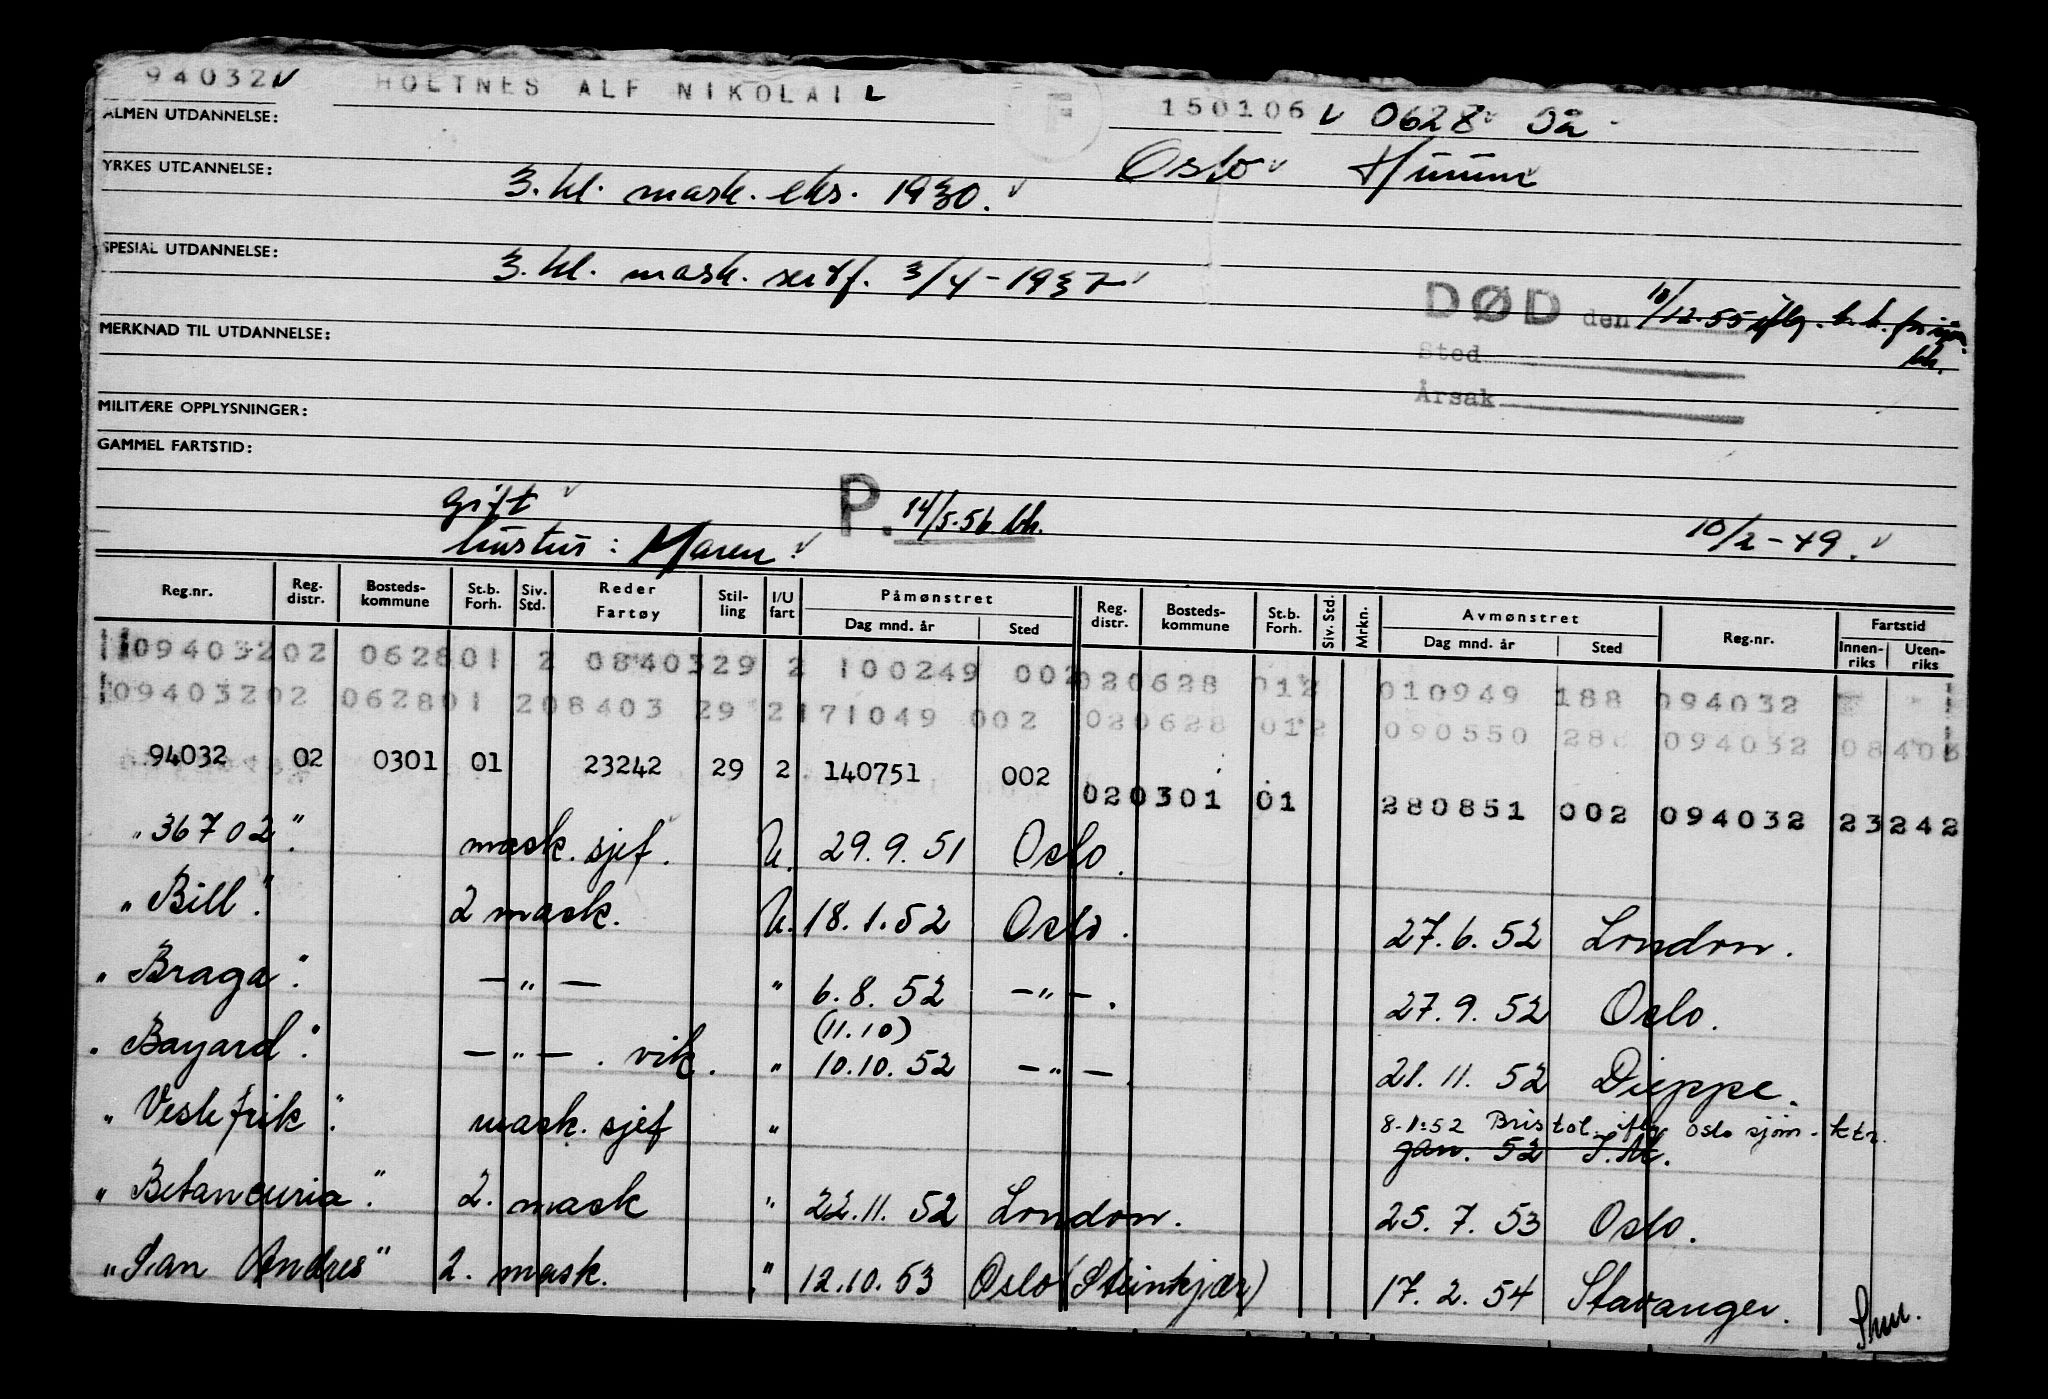 94032 HOLTNES ALF NIKOLAI 150106 0628
ALMEN UTDANNELSE:
Oslo Hurum
YRKES UTDANNELSE: 3. kl. mask. eks. 1930.
SPESIAL UTDANNELSE: 3. kl. mask. sertf. 3/4-1937
DØD den 10/12.55 iflg.
MERKNAD TIL UTDANNELSE:
Sted
Årsak
MILITÆRE OPPLYSNINGER:
GAMMEL FARTSTID:
Gift P. 14/5.56 bh.
hustru: Maren. 10/2-49.
Reg.nr. Reg. distr. Bosteds-kommune St.b. Forh. Siv. Std. Reder Fartøy Stil-ling I/U fart Påmønstret Dag mnd. år Sted Reg. distr. Bosteds-kommune St.b. Forh. Siv. Std. Mrkn. Avmønstret Dag mnd. år Sted Reg.nr. Fartstid Innen-riks Uten-riks
09403202 062801 2 0840329 2 100249 002 020628 012 010949 188 094032
09403202 062801 208403 29 2171049 002 020628 012 090550 094032 08403
94032 02 0301 01 23242 29 2 140751 002 020301 01 280851 002 094032 23242
"36702". mask. sjef. U. 29.9.51 Oslo.
"Bill". 2 mask. U. 18.1.52 Oslo. 27.6.52 London.
"Braga". — " — " 6.8.52 — " —. 27.9.52 Oslo.
(11.10)
"Bayard". — " —. vik. " 10.10.52 — " — 21.11.52 Dieppe.
"Veslefrik". mask. sjef " 8.1.52 Bristol iflg Oslo sjøm.-ktr.
jan. 52
"Betancuria". 2. mask " 22.11.52 London. 25.7.53 Oslo.
"San Andres" 2. mask. " 12.10.53 Oslo (Steinkjær) 17.2.54 Stavanger.